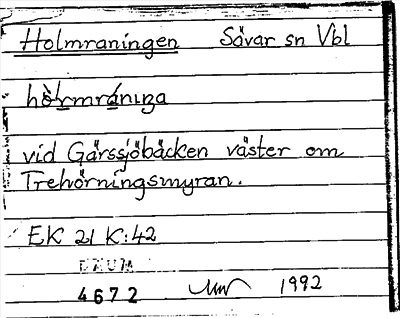 Holmraningen Sävar sn Vbl
hòlmránıŋa
vid Gärssjöbäcken väster om
Trehörningsmyran.
EK 21 K:42
DAUM
4672 1992